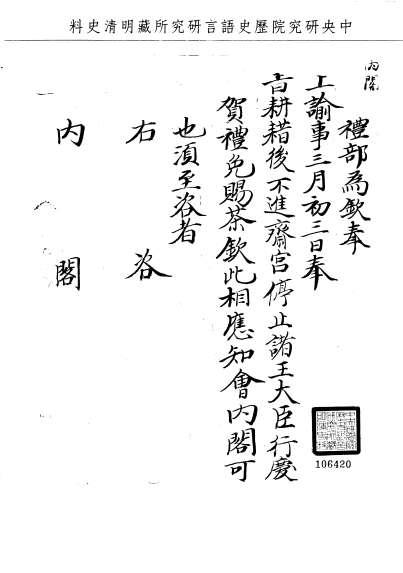 中央研究院歷史語言研究所藏明清史料
內閣
禮部為欽奉
上諭事三月初三日奉
旨耕耤後不進齋宮停止諸王大臣行慶
賀禮免賜茶欽此相應知會內閣可
也須至咨者
右咨
內閣
106420